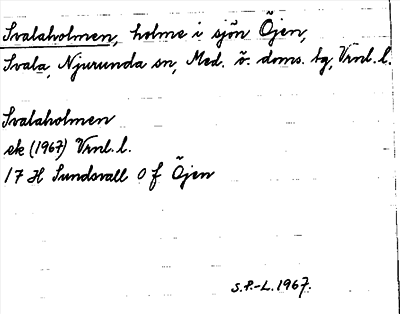 Svalaholmen, holme i sjön Öjen,
Svala, Njurunda sn, Med. ö. doms. tg, Vrnl. l.
Svalaholmen
ek (1967) Vrnl. l.
17 H Sundsvall 0 f Öjen
S.P.-L. 1967.